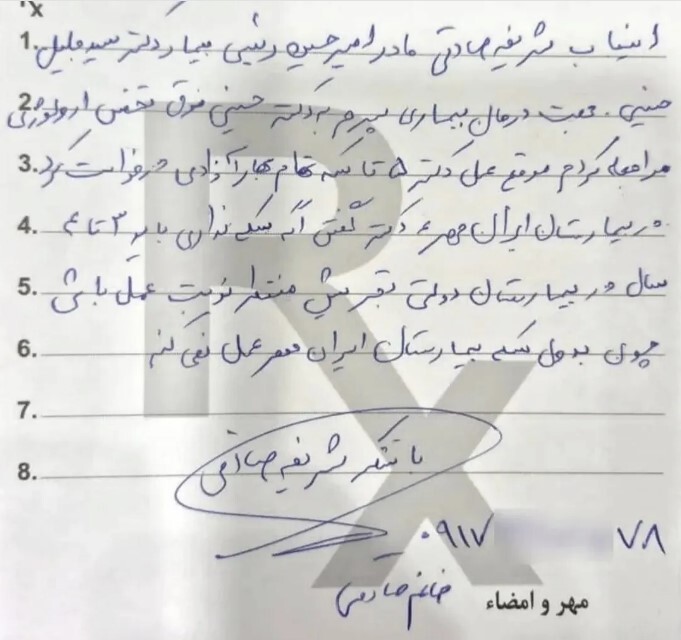 1. اینجانب شریفه صادقی مادر امیرحسین رئیسی بیمار دکتر سید جلیل
2. حسینی. جهت درمان بیماری پسرم به دکتر حسینی فوق تخصص ارولوژی
3. مراجعه کردم موقع عمل دکتر ۵ تا سکه تمام بهار آزادی درخواست کرد
4. در بیمارستان ایران مهر دکتر گفتن اگه سکه نداری باید ۳ تا ۴
5. سال در بیمارستان دولتی تجریش منتظر نوبت عمل باشی
6. چون بدون سکه بیمارستان ایران مهر عمل نمی کنم
7.
8. با تشکر شریفه صادقی
۰۹۱۷ ۷۸
خانم صادقی
مهر و امضاء
Rx